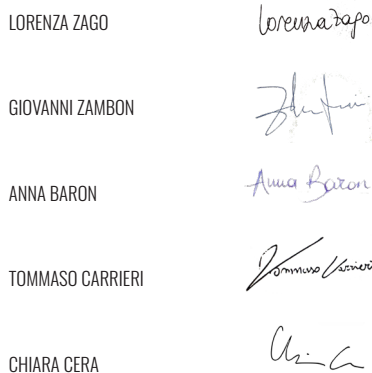 LORENZA ZAGO Lorenza Zago
GIOVANNI ZAMBON
ANNA BARON Anna Baron
TOMMASO CARRIERI Tommaso Carrieri
CHIARA CERA